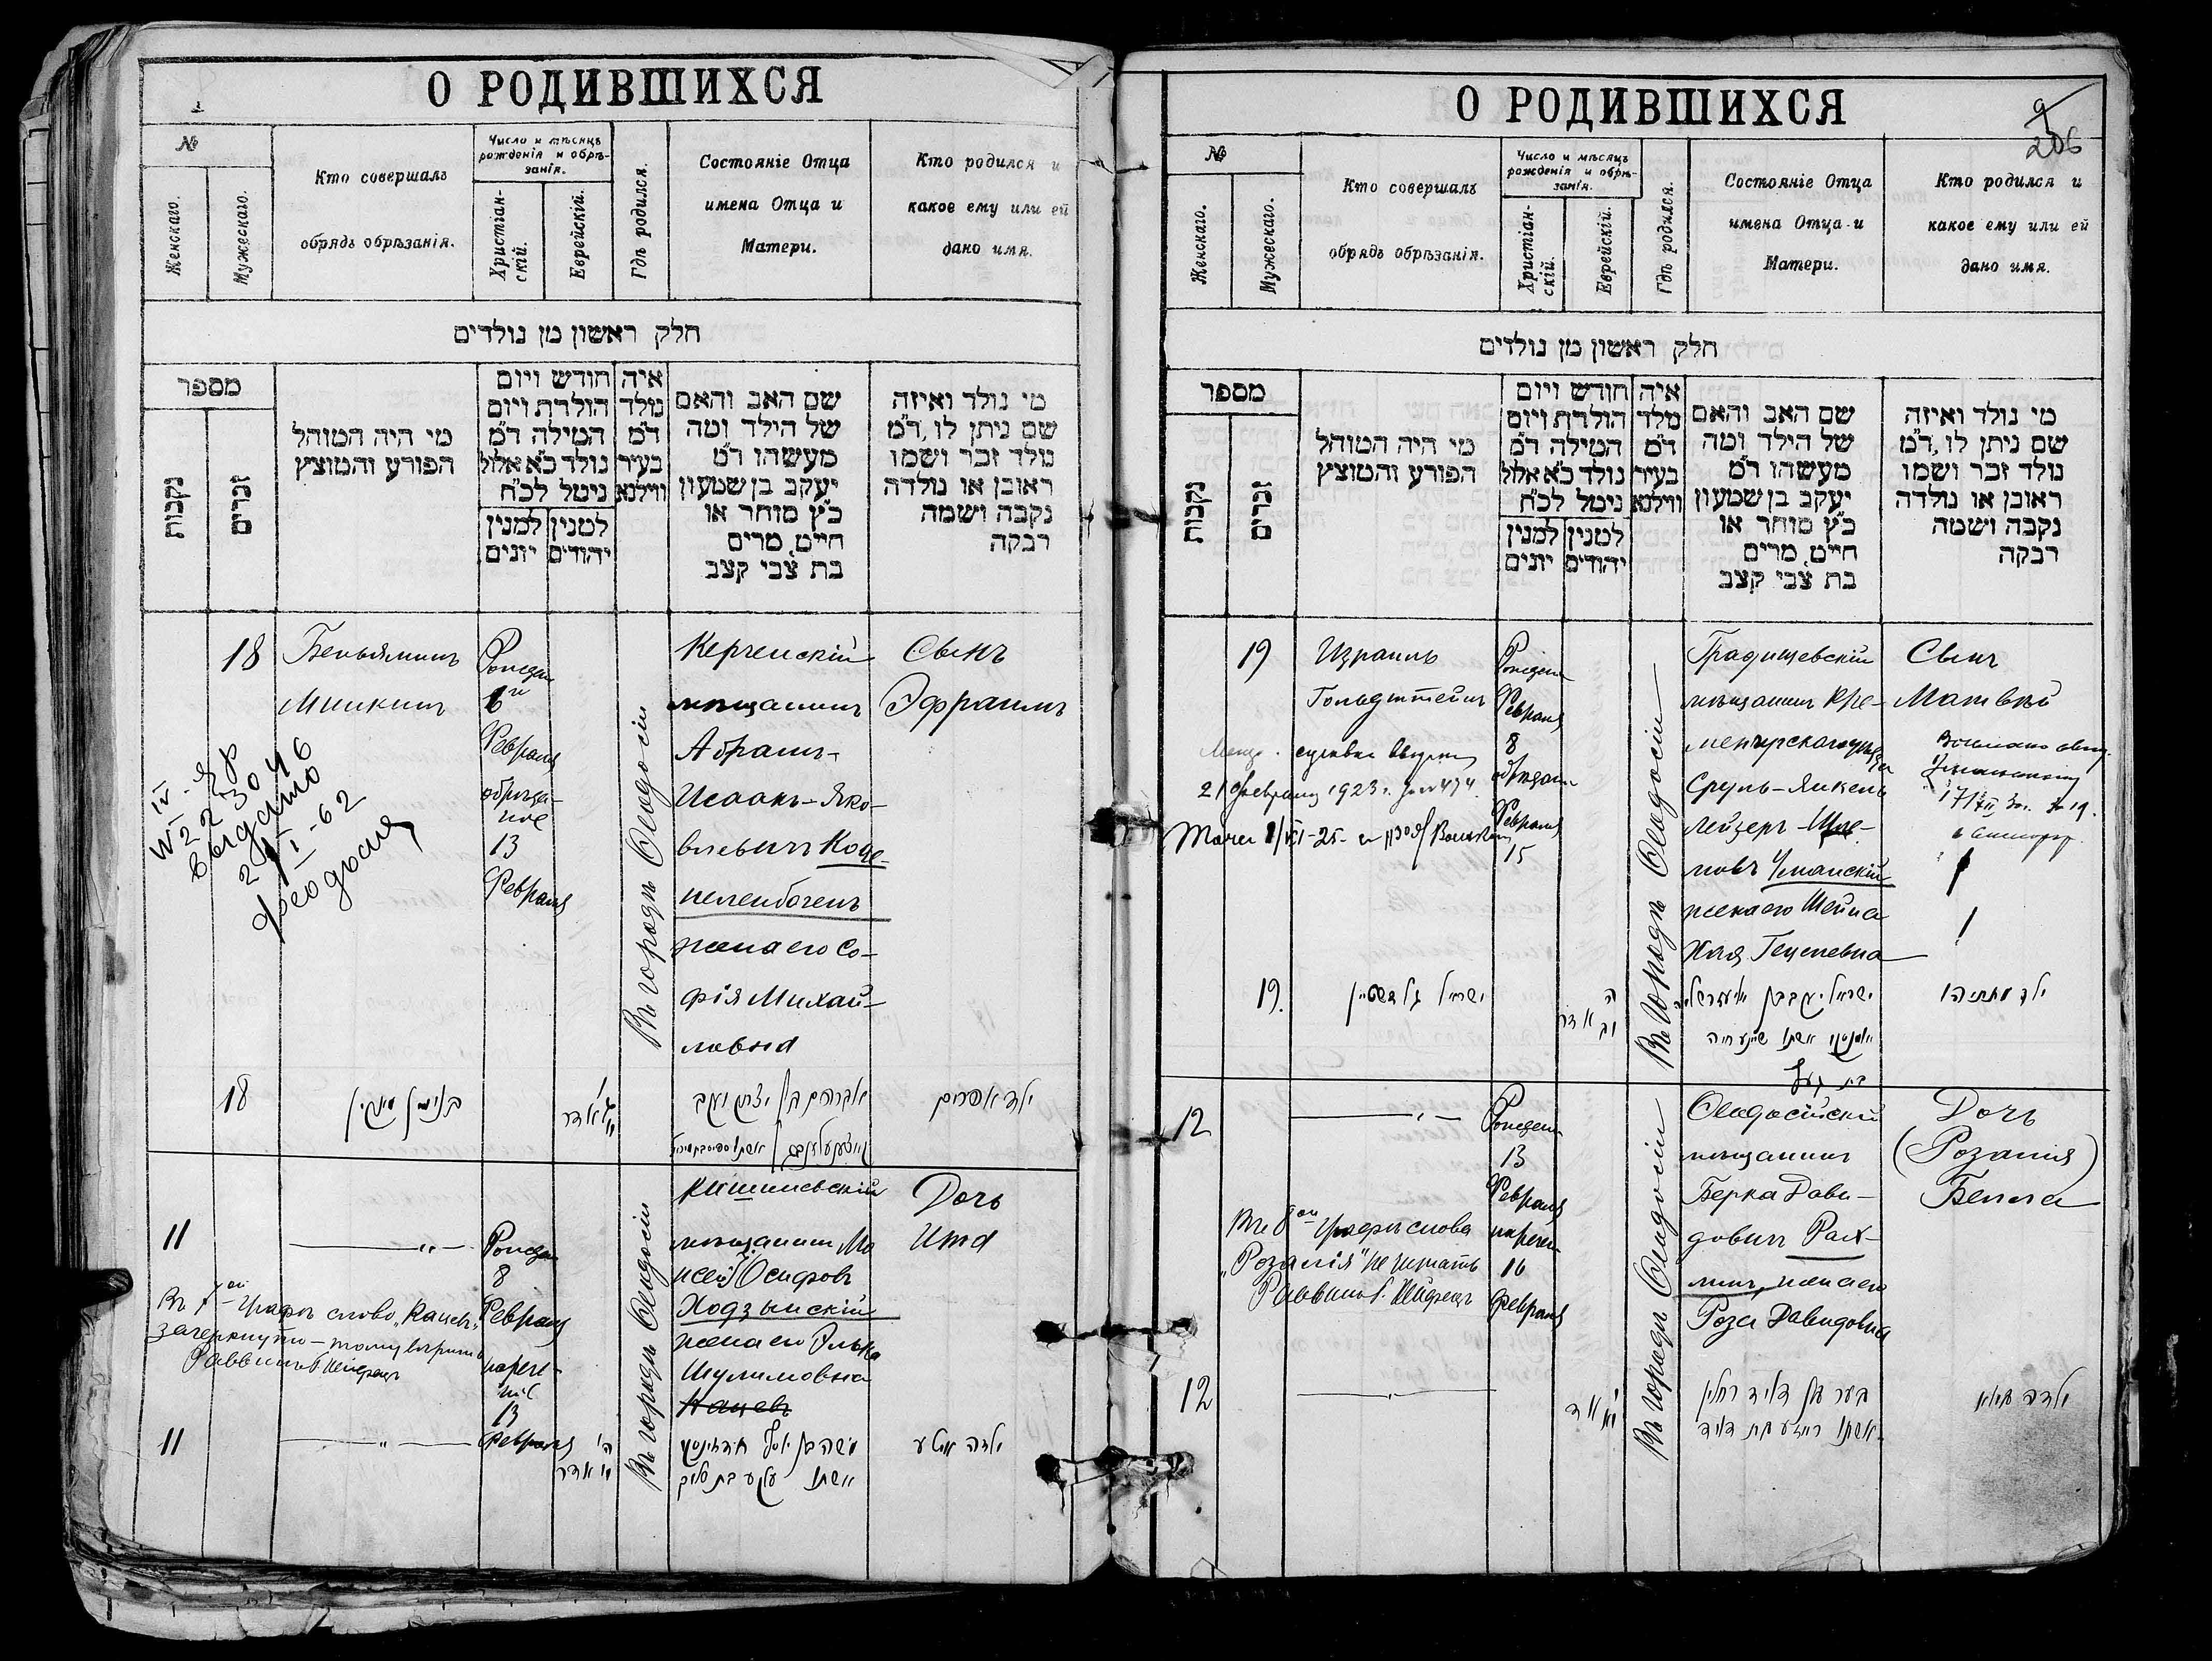 О РОДИВШИХСЯ
№
Женскаго.
Мужескаго.
Кто совершалъ
обрядъ обрѣзанія.
Число и мѣсяцъ
рожденія и обрѣ-
занія.
Христіан-
скій.
Еврейскій.
Гдѣ родился.
Состояніе Отца
имена Отца и
Матери.
Кто родился и
какое ему или ей
дано имя.
חלק ראשון מן נולדים
מספר
נקבות
זכרים
מי היה המוהל
הפורע והמוצץ
חודש ויום
הולדת ויום
המילה ד״מ
נולד כ״א אלול
ניטל לכ״ח
למנין
יונים
למנין
יהודים
איה
נולד
ד״מ
בעיר
ווילנא
שם האב והאם
של הילד ומה
מעשהו ד״מ
יעקב בן שמעון
כ״ץ סוחר או
חייט, מרים
בת צבי קצב
מי נולד ואיזה
שם ניתן לו, ד״מ
נולד זכר ושמו
ראובן או נולדה
נקבה ושמה
רבקה
18
Беньяминъ
Минкинъ
Рожден
6
Февраля
обрѣза-
ніе
13
Февраля
Въ городѣ Ѳеодосіи
Керченскій
мѣщанинъ
Абрамъ-
Исаакъ-Яко-
влевичъ Коце-
неленбогенъ
жена его Со-
фія Михай-
ловна
Сынъ
Эфраимъ
IV-ЯР
№ 223046
выдано
2/I-62
Феодосия
18
בנימן מינקין
ילד אפרים
11
Рожден
8
Февраля
нарече-
ніе
13
Февраля
Въ городѣ Ѳеодосіи
Кишиневскій
мѣщанинъ Мо
исей Осифовъ
Ходзынскій
жена его Элька
Шулимовна
Кацевъ
Дочь
Ита
Въ 7ой графѣ слово „Кацевъ“
зачеркнуто - тому вѣрить
Раввинъ
11
ילדה איטע
О РОДИВШИХСЯ
9
206
№
Женскаго.
Мужескаго.
Кто совершалъ
обрядъ обрѣзанія.
Число и мѣсяцъ
рожденія и обрѣ-
занія.
Христіан-
скій.
Еврейскій.
Гдѣ родился.
Состояніе Отца
имена Отца и
Матери.
Кто родился и
какое ему или ей
дано имя.
חלק ראשון מן נולדים
מספר
נקבות
זכרים
מי היה המוהל
הפורע והמוצץ
חודש ויום
הולדת ויום
המילה ד״מ
נולד כ״א אלול
ניטל לכ״ח
למנין
יונים
למנין
יהודים
איה
נולד
ד״מ
בעיר
ווילנא
שם האב והאם
של הילד ומה
מעשהו ד״מ
יעקב בן שמעון
כ״ץ סוחר או
חייט, מרים
בת צבי קצב
מי נולד ואיזה
שם ניתן לו, ד״מ
נולד זכר ושמו
ראובן או נולדה
נקבה ושמה
רבקה
19
Израиль
Гольдштейнъ
Рожден
Февраля
8
обрѣзан
Февраля
15
Въ городѣ Ѳеодосіи
Градищевскій
мѣщанинъ Кре-
менчугскаго уѣзда
Сруль-Янкель
Лейзеръ-Шле-
мовъ Уманскій
жена его Шейна
Хая Гецелевна
Сынъ
Матвѣй
21 февраля 1923 г.
19.
ישראל גולדשטיין
ילד מתתיהו
12
Рожден
13
Февраля
нарече-
16
Февраля
Въ городѣ Ѳеодосіи
Ѳеодосійскій
мѣщанинъ
Берка Дави-
довичъ Рах-
линъ, жена его
Роза Давидовна
Дочь
(Розалія)
Белла
Въ 8ой графѣ слова
„Розалія“ не читать
Раввинъ
12
בער בן דוד רחלין
אשתו רייזע בת דוד
ילדה ביילא